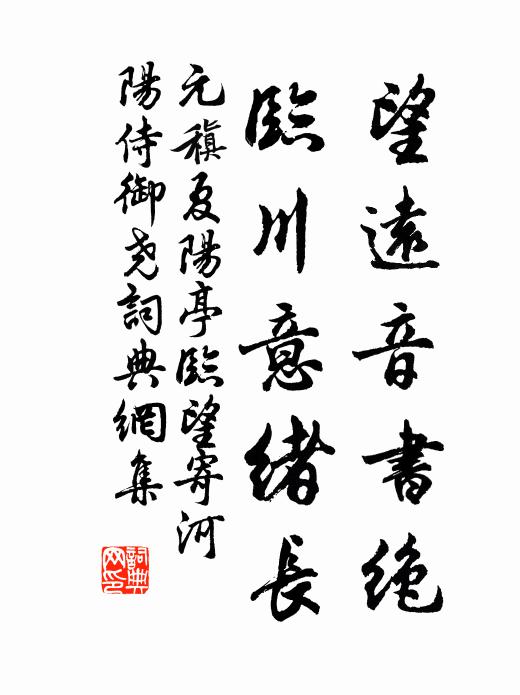 望遠音書絶
臨川意緒長
元稹夏陽亭臨望寄河
陽侍御尧詞典網集
詞典
网印